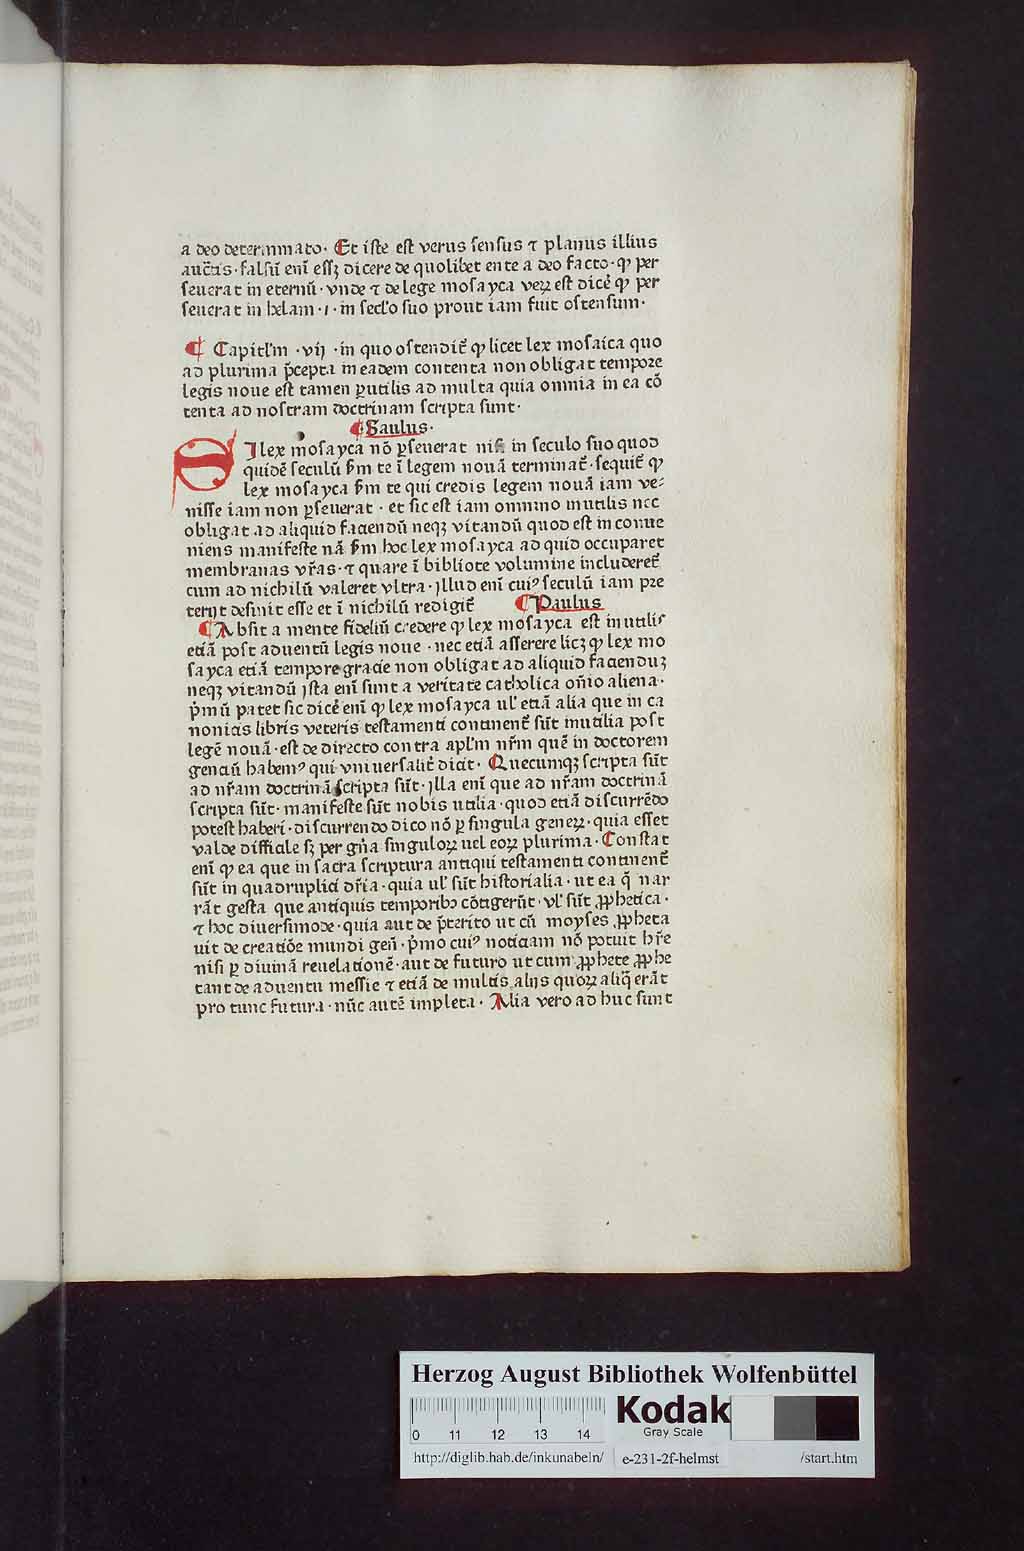 a deo determinato· Et iste est verus sensus ⁊ planus illius
auctīs·falsū enī essꝫ dicere de quolibet ente a deo facto·ꝙ per
seuerat in eternū·vnde ⁊ de lege mosayca veꝝ est dicē ꝙ per
seuerat in helam·i·in secl'o suo prout iam fuit ostensum·
¶ Capitl'm ·vij ·in quo ostendit̄ ꝙ licet lex mosaica quo
ad plurima p̄cepta in eadem contenta non obligat tempore
legis noue est tamen ꝑutilis ad multa quia omnia in ea cō
tenta ad nostram doctrinam scripta sunt·
¶Saulus·
SI lex mosayca nō ꝑseuerat nisi in seculo suo quod
quidē seculū ẜm te ī legem nouā terminat̄·sequit̄ ꝙ
lex mosayca ẜm te qui credis legem nouā iam ve⸗
nisse iam non ꝑseuerat· et sic est iam omnino inutilis nec
obligat ad aliquid faciendū neqꝫ vitandū quod est in conue
niens manifeste nā ẜm hoc lex mosayca ad quid occuparet
membranas vr̄as·⁊ quare ī bibliote volumine includeret̄
cum ad nichilū valeret vltra·illud enī cuiꝰ seculū iam pre
terijt desinit esse et ī nichilū redigit̄ ¶Paulus
¶Absit a mente fideliū credere ꝙ lex mosayca est inutilis
etiā post aduentū legis noue·nec etiā asserere licꝫ ꝙ lex mo
sayca etiā tempore gracie non obligat ad aliquid facienduꝫ
neqꝫ vitandū ista enī sunt a veritate catholica oīno aliena·
p̄mū patet sic dicē enī ꝙ lex mosayca ul' etiā alia que in ca
nonicis libris veteris testamenti continent̄ sūt inutilia post
legē nouā·est de directo contra apl'm nr̄m quē in doctorem
genciū habemꝰ qui vniuersalit̄ dicit· Quecumqꝫ scripta sūt
ad nr̄am doctrinā scripta sūt·illa enī que ad nr̄am doctrinā
scripta sūt·manifeste sūt nobis utilia·quod etiā discurrēdo
potest haberi·discurrendo dico nō ꝑ singula geneꝝ·quia esset
valde difficile sꝫ per gn̄a singuloꝝ uel eoꝝ plurima·Constat
enī ꝙ ea que in sacra scriptura antiqui testamenti continent̄
sūt in quadruplici dr̄ia·quia ul' sūt historialia·ut ea q̄ nar
rāt gesta que antiquis temporibꝫ cōtigerūt·vl' sūt ꝓphetica·
⁊ hoc diuersimode·quia aut de p̄terito ut cū moyses ꝓpheta
uit de creatiōe mundi gen̄·p̄mo cuiꝰ noticiam nō potuit hr̄e
nisi ꝑ diuinā reuelationē·aut de futuro ut cum ꝓphete ꝓphe
tant de aduentu messie ⁊ etiā de multis alijs quoꝝ aliq̄ erāt
pro tunc futura·nūc autē impleta· Alia vero ad huc sunt
Herzog August Bibliothek Wolfenbüttel
0 11 12 13 14
Kodak
Gray Scale
http://diglib.hab.de/inkunabeln/ e-231-2f-helmst /start.htm